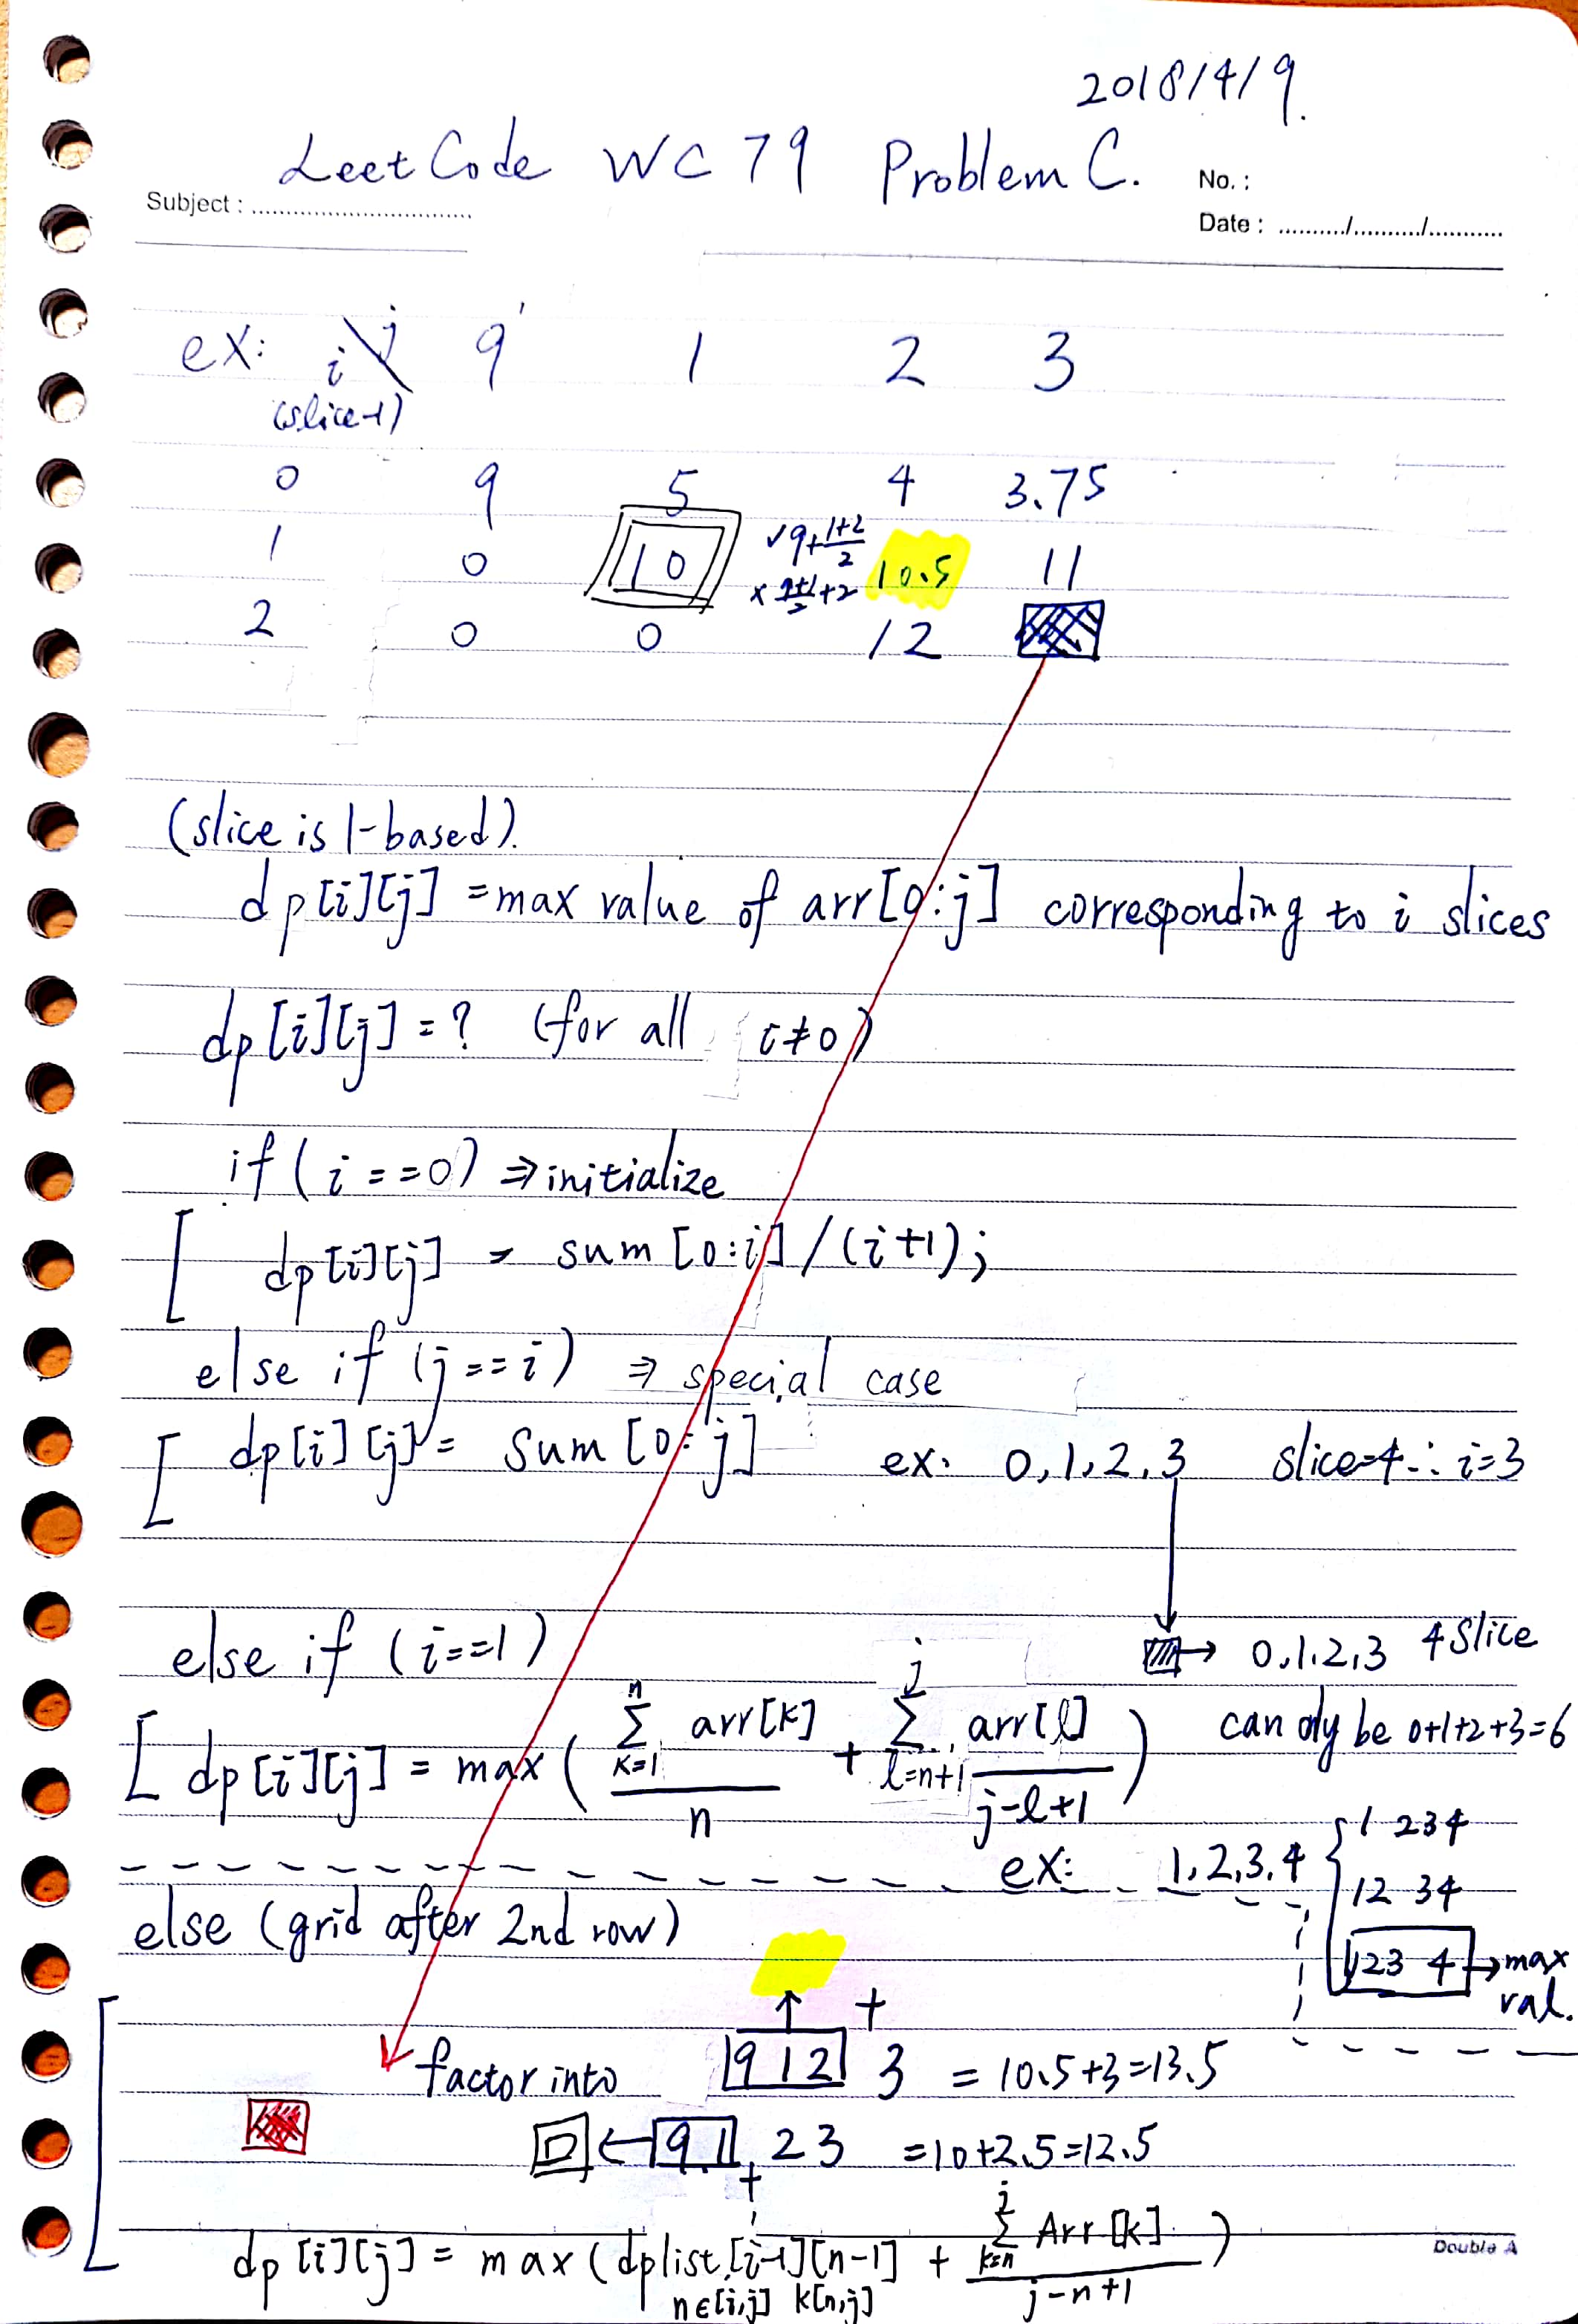 2018/4/9.
LeetCode WC 79 Problem C.
Subject :
No. :
Date : ........../........../...........
ex: i \ j 9 1 2 3
(slice-1)
0 9 5 4 3.75
1 0 10 ✓9+(1+2)/2 10.5 11
× (9+1)/2+2
2 0 0 12
(slice is 1-based).
dp[i][j] = max value of arr[0:j] corresponding to i slices
dp[i][j] = ? (for all i≠0)
if (i==0) ⇒ initialize
dp[i][j] = sum[0:i]/(i+1);
else if (j==i) ⇒ special case
dp[i][j] = sum[0:j] ex. 0,1,2,3 slice=4∴i=3
else if (i==1)
→ 0,1,2,3 4 Slice
can only be 0+1+2+3=6
dp[i][j] = max( (Σ_{k=1}^{n} arr[k])/n + Σ_{l=n+1}^{j} arr[l]/(j-l+1) )
ex: 1,2,3,4 { 1 234
12 34
123 4 → max val.
else (grid after 2nd row)
factor into 9 1 2 + 3 = 10.5+3=13.5
← 9 1 + 2 3 = 10+2.5=12.5
dp[i][j] = max(dplist[i-1][n-1] + (Σ_{k=n}^{j} Arr[k])/(j-n+1))
n∈[i,j] k[n,j]
Double A